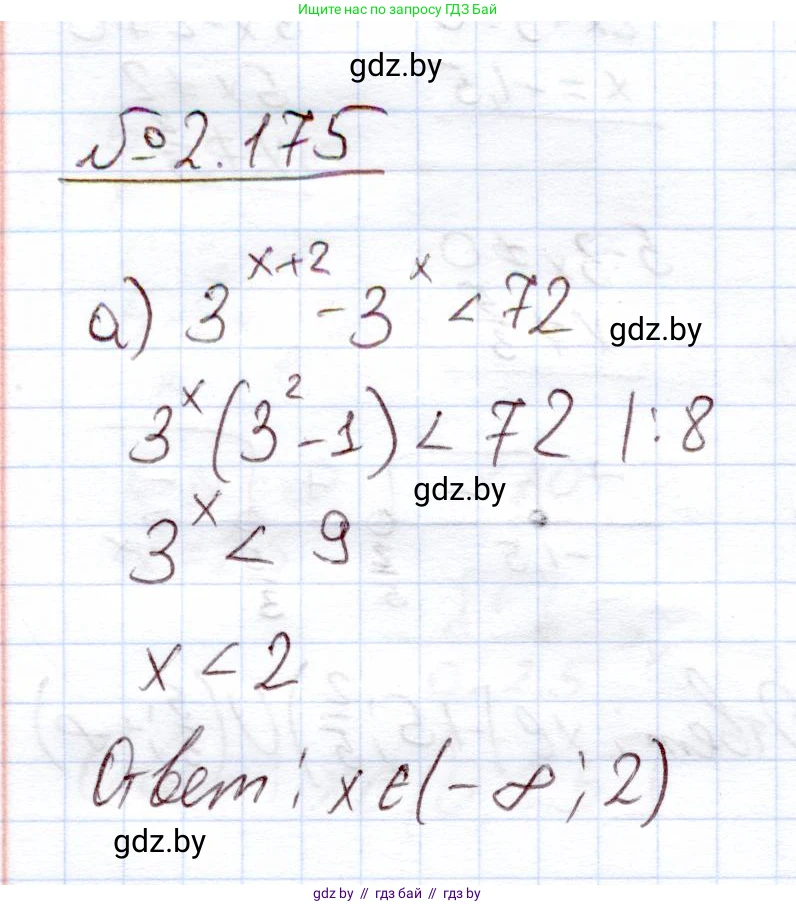 Ищите нас по запросу ГДЗ Бай
gdz.by
№ 2.175
а) 3^(x+2) - 3^x < 72
gdz.by
3^x (3^2 - 1) < 72 | : 8
gdz.by
3^x < 9
x < 2
Ответ: x ∈ (-∞; 2)
gdz.by
gdz by // гдз бай // гдз by